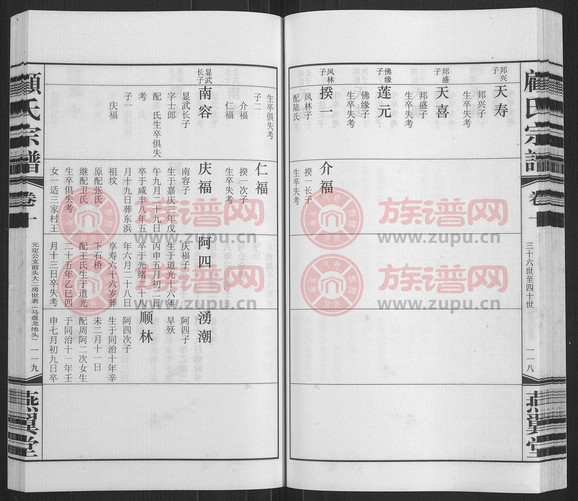 顾氏宗谱
卷十
三十六世至四十世
一一八
燕翼堂
邦兴子
天寿
邦兴子
生卒失考
邦盛子
天喜
邦盛子
生卒失考
佛缘子
莲元
佛缘子
生卒失考
凤林子
揆一
凤林子
配陆氏
生卒失考
介福
揆一长子
生卒失考
生卒俱失考
子二
介福
仁福
仁福
揆一次子
生卒失考
显武长子
南容
显武长子
字士郎
配 氏生卒俱失
考
子一
庆福
庆福
南容子
生于嘉庆三年戊
午九月十九日
卒于咸丰八年五
月十九日葬东浜
祖坟
原配张氏
继配卫氏
生卒俱失考
女一适三家村王
阿四
庆福子
生于道光十六年
丙申五月初二日
卒于光绪二十八
年六月二十八日
享寿六十六岁葬
下石桥
配王氏生于道光
二十五年乙巳四
月十三日卒失考
湧潮
阿四子
早殀
顺林
阿四次子
生于同治十年辛
未二月十一日
配周阿二次女生
于同治十一年壬
申七月初九日卒
顾氏宗谱
卷十
元定公支前头大二房世表(马盘龙池头)
一一九
燕翼堂
族谱网
www.zupu.cn
族谱网
www.zupu.cn